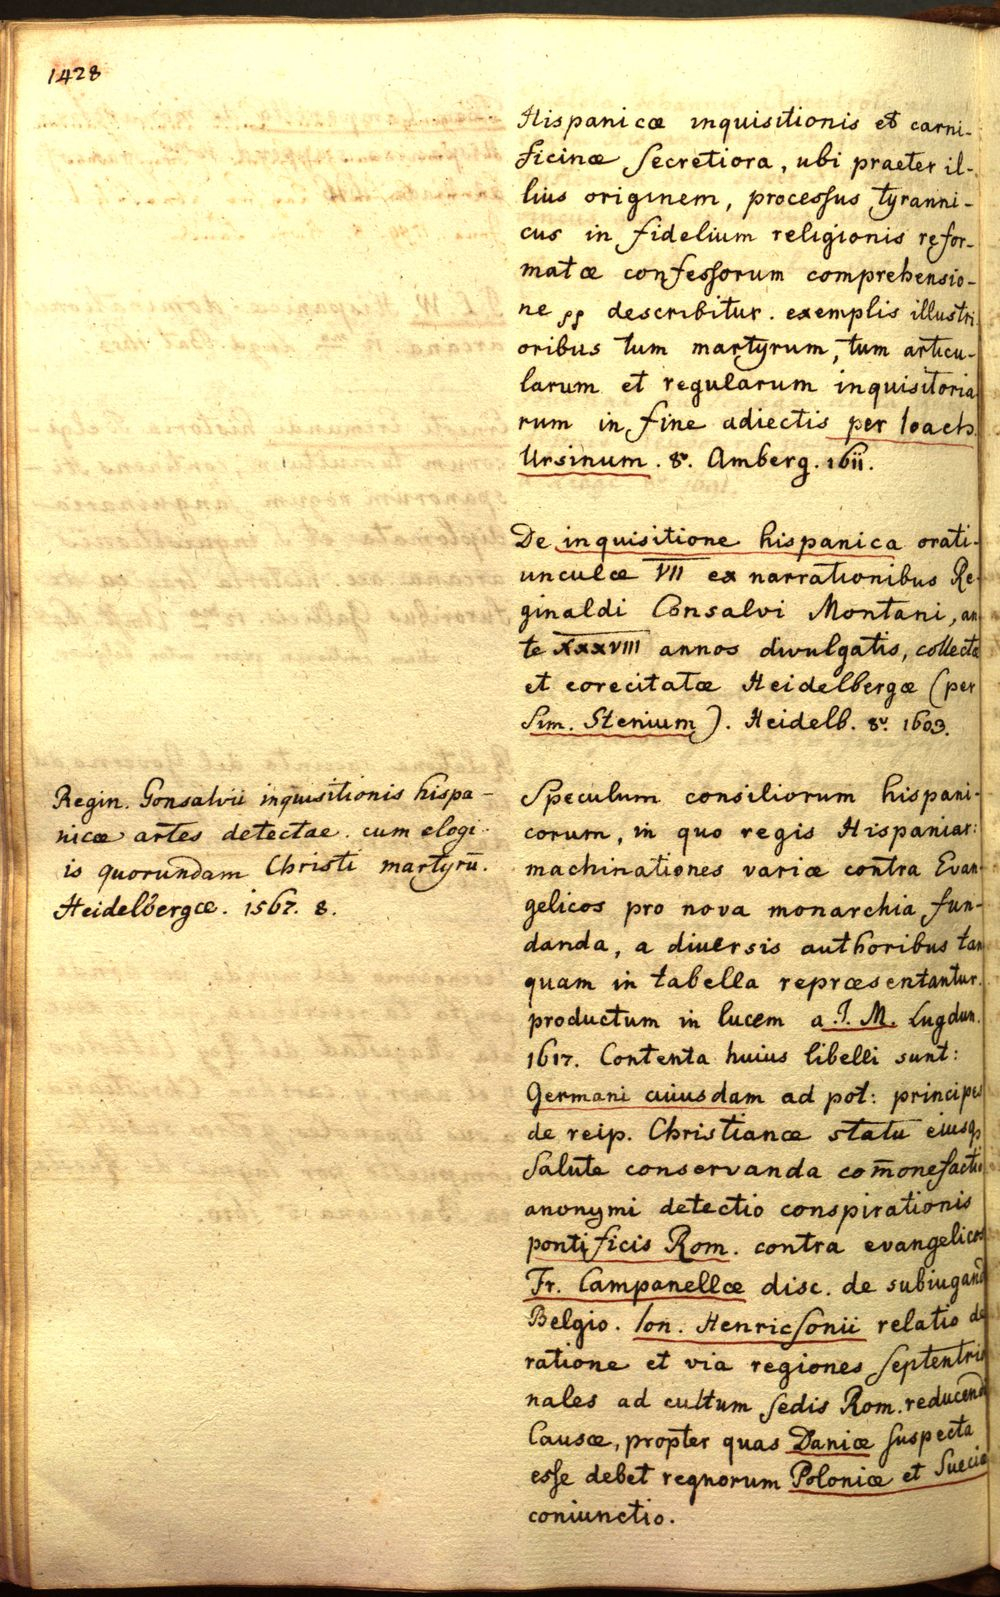 1428
Hispanicæ inquisitionis et carni-
ficinæ secretiora, ubi praeter il-
lius originem, processus tyranni-
cus in fidelium religionis refor-
matæ confessorum comprehensio-
ne pp describitur. exemplis illustri
oribus tum martyrum, tum articu-
larum et regularum inquisitoria
rum in fine adiectis per Ioach.
Ursinum. 8º. Amberg. 1611.
De inquisitione hispanica orati-
unculæ VII ex narrationibus Re-
ginaldi Consalvi Montani, an
te XXXVIII annos divulgatis, collectæ
et eorecitatæ Heidelbergæ (per
Sim. Stenium). Heidelb. 8º. 1603.
Regin. Gonsalvii inquisitionis hispa-
nicæ artes detectae. cum elogi-
is quorundam Christi martyrū.
Heidelbergæ. 1567. 8.
Speculum consiliorum hispani-
corum, in quo regis Hispaniar:
machinationes variæ contra Evan-
gelicos pro nova monarchia fun-
danda, a diversis authoribus tan
quam in tabella repræsentantur.
productum in lucem a J. M. Lugdun.
1617. Contenta huius libelli sunt:
Germani cuiusdam ad pot: principes
de reip. Christianæ statu eiusq
salute conservanda com̄onefactio
anonymi detectio conspirationis
pontificis Rom. contra evangelicos
Fr. Campanellæ disc. de subiugand
Belgio. Ion. Henricsonii relatio de
ratione et via regiones septentrio
nales ad cultum sedis Rom. reducend
Causæ, propter quas Daniæ suspecta
esse debet regnorum Poloniæ et Sueciæ
coniunctio.